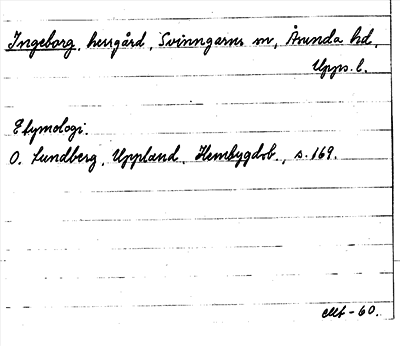 Ingeborg, herrgård, Svinngarns sn, Åsunda hd,
Upps. l.
Etymologi.
O. Lundberg, Uppland, Hembygdsb., s. 169.
-60.